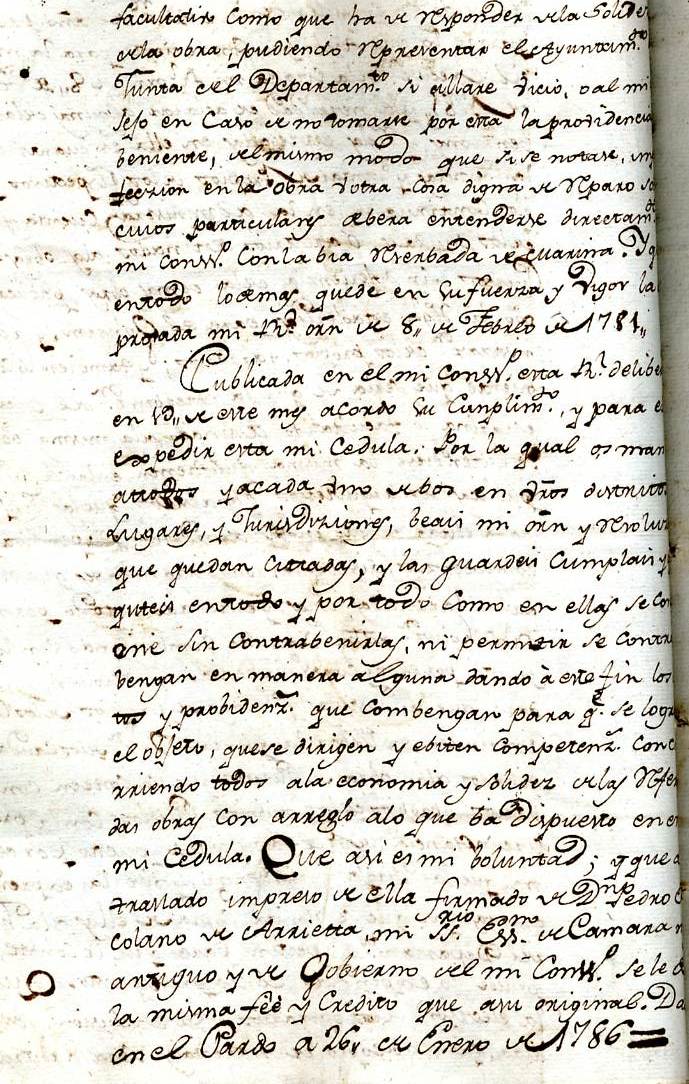 facultativo como que ha de responder de la Solidez
de la obra, pudiendo representar el Ayuntam.to
Junta del Departam.to si allare vicio, o al mi
Jefo en Caso de no tomarse por esta la providencia
beniente, del mismo modo que si se notase, im
feczion en la obra u otra Cosa digna de reparo so
cuios particulares debera entenderse directam.te
mi Cons.o Con la bia reserbada de Marina. Y q
en todo lo demas quede en su fuerza y vigor la
prozada mi R.l orn de 8,, de Febrero de 1781,,
Publicada en el mi Cons.o esta R.l delibe
en 19,, de este mes acordo su Cumplim.to, y para e
expedir esta mi Cedula. Por la qual os man
a todos y a cada uno de bos en vros distritos
Lugares, y Jurisdiziones, beais mi orn y resolu
que quedan Cittadas, y las Guardeis Cumplais y
quteis en todo y por todo Como en ellas se Con
one sin Contrabenirlas, ni permitir se Contra
bengan en manera alguna dando à este fin los
tos y probidenz.s que Combengan para q.e se logr
el objeto, que se dirigen y ebiten Competenz.s Con
rriendo todos a la economia y solidez de las refer
das obras con arreglo a lo que ba dispuesto en e
mi Cedula. Que asi es mi boluntad; y que a
traslado impreso de ella firmado de Dn Pedro Es
colano de Arrietta mi Ss.rio Ess.no de Camara m
antiguo y de Gobierno del mi Cons.o se le d
la misma feè y Credito que a su original. Da
en el Pardo a 26,, de Enero de 1786 =